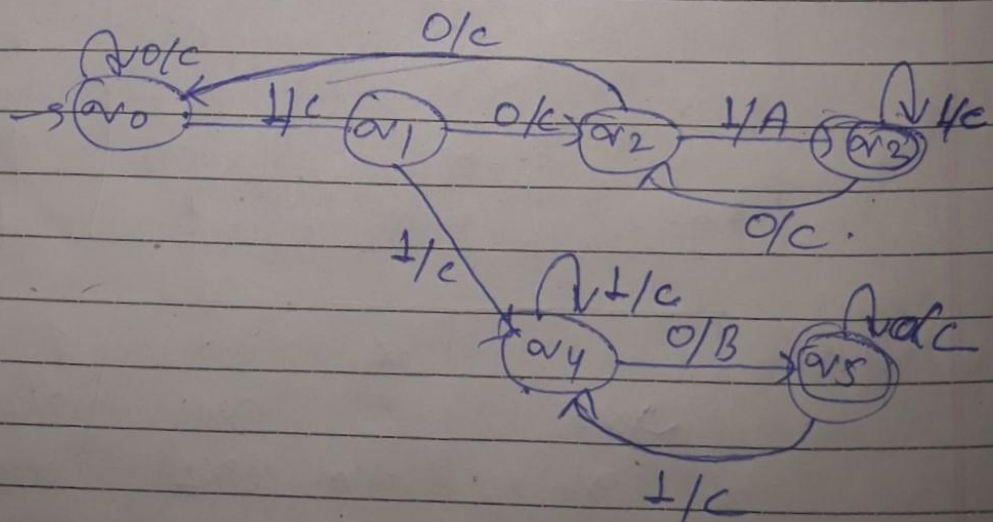 0/C
0/C
q0 1/C q1 0/C q2 1/A q3 1/C
0/C.
1/C
1/C
q4 0/B q5 0/C
1/C